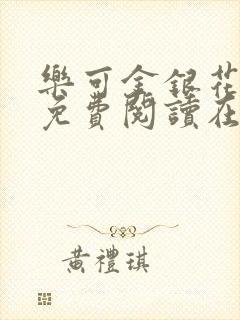 樂可金銀花
免費閱讀在
黃禮琪